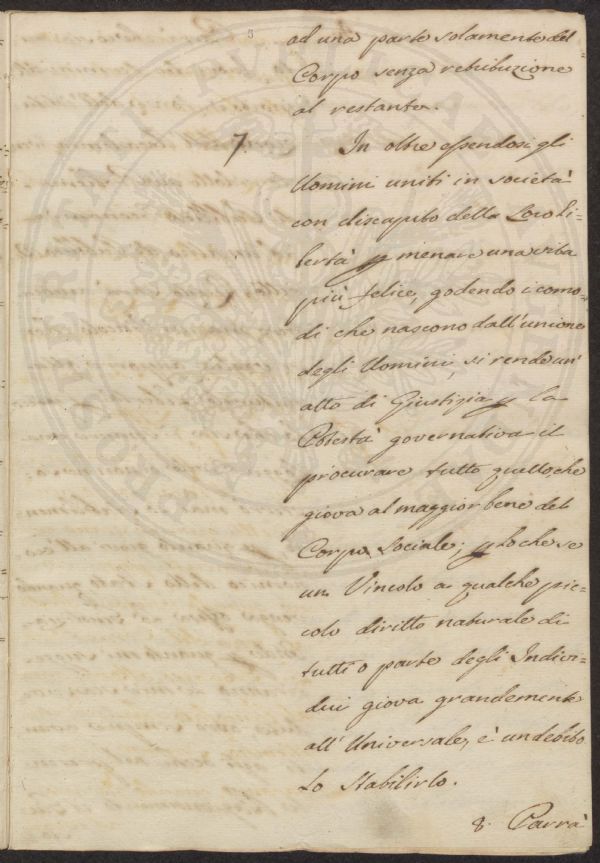 ad una parte solamente del
Corpo senza retribuzione
al restante.
7. In oltre essendosi gli
Uomini uniti in società
con discapito della Loro li=
bertà p menare una vita
più felice, godendo i como=
di che nascono dall'unione
degli Uomini, si rende un'
atto di Giustizia p la
Potestà governativa il
procurare tutto quello che
giova al maggior bene del
Corpo Sociale; p lo che se
un Vincolo a qualche pic=
colo diritto naturale di
tutti o parte degli Indivi=
dui giova grandemente
all'Universale, è un debito
Lo Stabilirlo.
8. Parrà